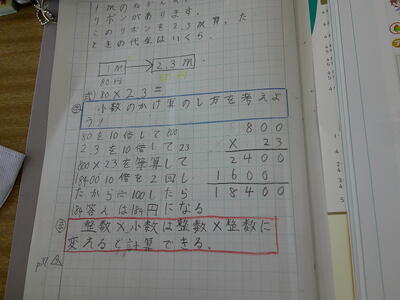 1mのねだんが
リボンがあります。
このリボンを2.3m買った
ときの代金はいくら。
1m 2.3m
80円
式) 80×2.3=
小数のかけ算のし方を考えよ
う!
80を10倍して800
2.3を10倍して23
800×23を筆算して
18400 10倍を2回し
だから÷100したら
184答えは184円になる
800
× 23
2400
1600
18400
整数×小数は整数×整数に
変えると計算できる。